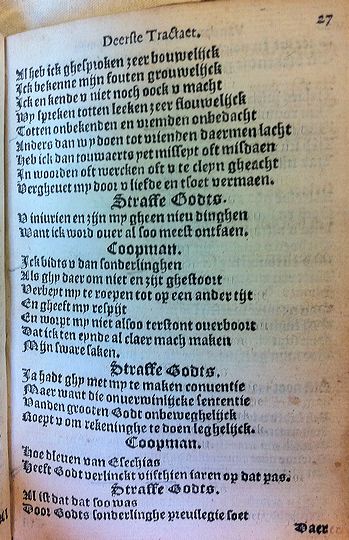 Deerste Tractaet. 27
Al heb ick ghesproken zeer bouwelijck
Ick bekenne mijn fouten grouwelijck
Ick en kende v niet noch oock v macht
Wy spreken totten leeken zeer flouwelijck
Totten onbekenden en vremden onbedacht
Anders dan wy doen tot vrienden daermen lacht
Heb ick dan touwaerts yet misseyt oft misdaen
In woorden oft wercken oft v te cleyn gheacht
Vergheuet my door v liefde en tsoet vermaen.
Straffe Godts.
V iniurien en zijn my gheen nieu dinghen
Want ick word ouer al soo meest ontfaen.
Coopman.
Ick bidts v dan sonderlinghen
Als ghy daer om niet en zijt ghestoort
Verbeyt my te roepen tot op een ander tijt
En gheeft my respijt
En worpt my niet alsoo terstont ouerboort
Dat ick ten eynde al claer mach maken
Mijn sware saken.
Straffe Godts.
Ja hadt ghy met my te maken conuentie
Maer want die onuerwinlijcke sententie
Vanden grooten Godt onbeweghelijck
Roept v om rekeninghe te doen leghelijck.
Coopman.
Hoe dleuen van Esechias
Heeft Godt verlinckt vijfthien iaren op dat pas.
Straffe Godts.
Al ist dat dat soo was
Door Godts sonderlinghe preuilegie soet
Daer